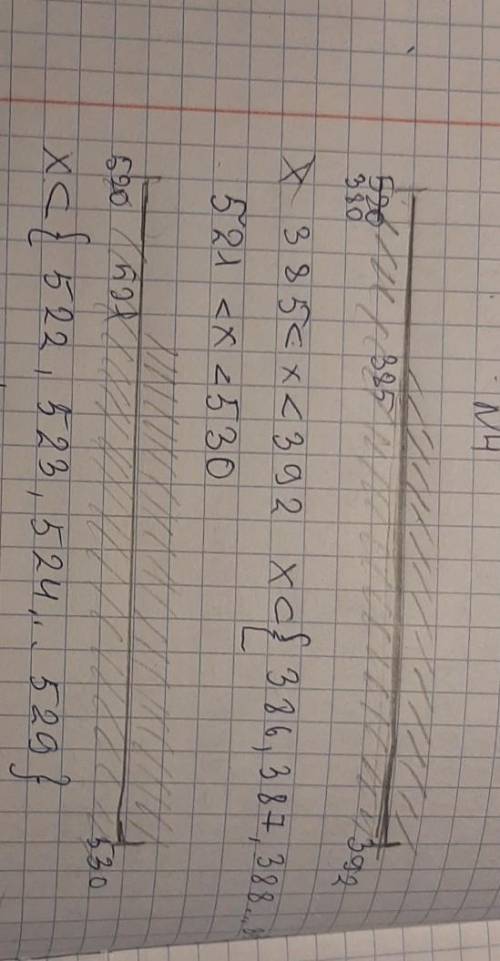 N4
380 385 392
X 385<x<392 X⊂{ 386, 387, 388...
521 <x <530
520 521 530
X⊂{ 522, 523, 524,.. 529}